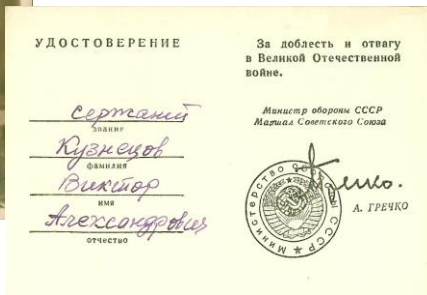 УДОСТОВЕРЕНИЕ
сержант
звание
Кузнецов
фамилия
Виктор
имя
Александрович
отчество
За доблесть и отвагу
в Великой Отечественной
войне.
Министр обороны СССР
Маршал Советского Союза
А. ГРЕЧКО
Министерство обороны СССР